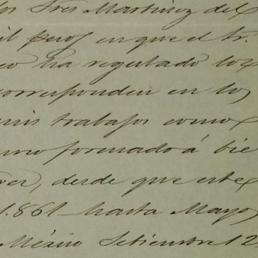 los Sres Martinez del
mil pesos en que el Sr.
co ha regulado los
corresponden en los
mis trabajos como
formado á bie
ver, desde que este
1861 hasta Mayo
México Setiembre 12